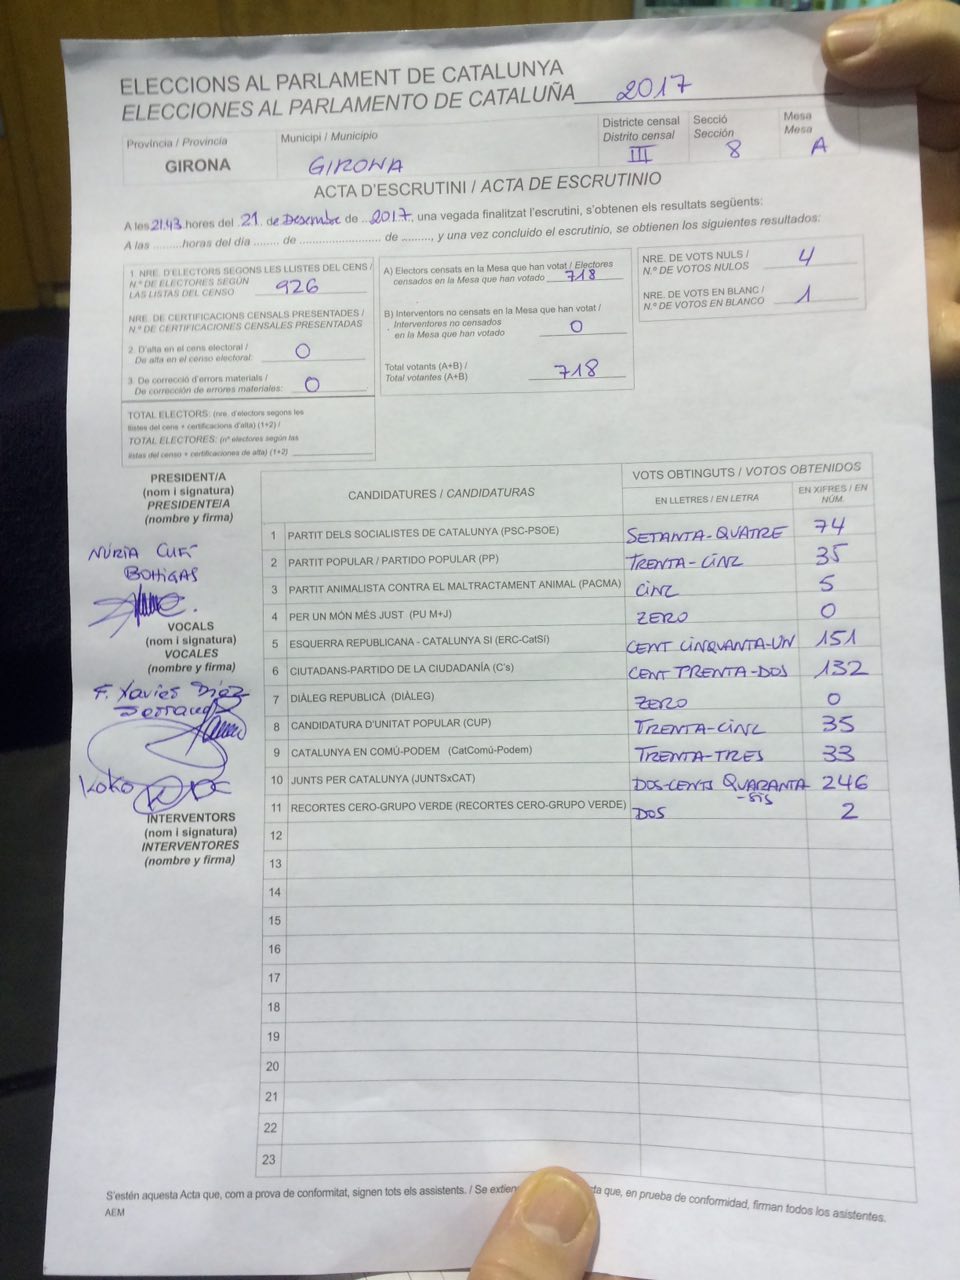 ELECCIONS AL PARLAMENT DE CATALUNYA
ELECCIONES AL PARLAMENTO DE CATALUÑA 2017
Província / Provincia
GIRONA
Municipi / Municipio
GIRONA
Districte censal
Distrito censal
III
Secció
Sección
8
Mesa
Mesa
A
ACTA D'ESCRUTINI / ACTA DE ESCRUTINIO
A les 21.43 hores del 21 de Desembre de 2017, una vegada finalitzat l'escrutini, s'obtenen els resultats següents:
A las .........horas del día ....... de ...................... de ........, y una vez concluido el escrutinio, se obtienen los siguientes resultados:
1. NRE. D'ELECTORS SEGONS LES LLISTES DEL CENS /
N.º DE ELECTORES SEGÚN
LAS LISTAS DEL CENSO 926
NRE. DE CERTIFICACIONS CENSALS PRESENTADES /
N.º DE CERTIFICACIONES CENSALES PRESENTADAS
2. D'alta en el cens electoral /
De alta en el censo electoral: 0
3. De correcció d'errors materials /
De corrección de errores materiales: 0
TOTAL ELECTORS: (nre. d'electors segons les
llistes del cens + certificacions d'alta) (1+2) /
TOTAL ELECTORES: (nº electores según las
listas del censo + certificaciones de alta) (1+2)
A) Electors censats en la Mesa que han votat / Electores
censados en la Mesa que han votado 718
B) Interventors no censats en la Mesa que han votat /
Interventores no censados
en la Mesa que han votado 0
Total votants (A+B) /
Total votantes (A+B) 718
NRE. DE VOTS NULS /
N.º DE VOTOS NULOS 4
NRE. DE VOTS EN BLANC /
N.º DE VOTOS EN BLANCO 1
PRESIDENT/A
(nom i signatura)
PRESIDENTE/A
(nombre y firma)
NÚRIA CUFÍ
BOHIGAS
VOCALS
(nom i signatura)
VOCALES
(nombre y firma)
F. Xavier Díez
Koko
INTERVENTORS
(nom i signatura)
INTERVENTORES
(nombre y firma)
CANDIDATURES / CANDIDATURAS
VOTS OBTINGUTS / VOTOS OBTENIDOS
EN LLETRES / EN LETRA
EN XIFRES / EN
NÚM.
1 PARTIT DELS SOCIALISTES DE CATALUNYA (PSC-PSOE) SETANTA-QUATRE 74
2 PARTIT POPULAR / PARTIDO POPULAR (PP) TRENTA-CINC 35
3 PARTIT ANIMALISTA CONTRA EL MALTRACTAMENT ANIMAL (PACMA) CINC 5
4 PER UN MÓN MÉS JUST (PU M+J) ZERO 0
5 ESQUERRA REPUBLICANA - CATALUNYA SI (ERC-CatSí) CENT CINQUANTA-UN 151
6 CIUTADANS-PARTIDO DE LA CIUDADANÍA (C's) CENT TRENTA-DOS 132
7 DIÀLEG REPUBLICÀ (DIÀLEG) ZERO 0
8 CANDIDATURA D'UNITAT POPULAR (CUP) TRENTA-CINC 35
9 CATALUNYA EN COMÚ-PODEM (CatComú-Podem) TRENTA-TRES 33
10 JUNTS PER CATALUNYA (JUNTSxCAT) DOS-CENTS QUARANTA-SIS 246
11 RECORTES CERO-GRUPO VERDE (RECORTES CERO-GRUPO VERDE) DOS 2
12
13
14
15
16
17
18
19
20
21
22
23
S'estén aquesta Acta que, com a prova de conformitat, signen tots els assistents. / Se extien ta que, en prueba de conformidad, firman todos los asistentes.
AEM